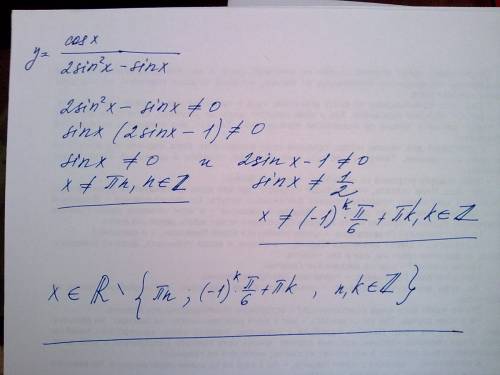 y = cosx / 2sin²x - sinx
2sin²x - sinx ≠ 0
sinx (2sinx - 1) ≠ 0
sinx ≠ 0 и 2sinx - 1 ≠ 0
x ≠ πn, n ∈ ℤ sinx ≠ 1/2
x ≠ (-1)ᵏ · π/6 + πk, k ∈ ℤ
x ∈ ℝ \ { πn ; (-1)ᵏ · π/6 + πk , n, k ∈ ℤ }